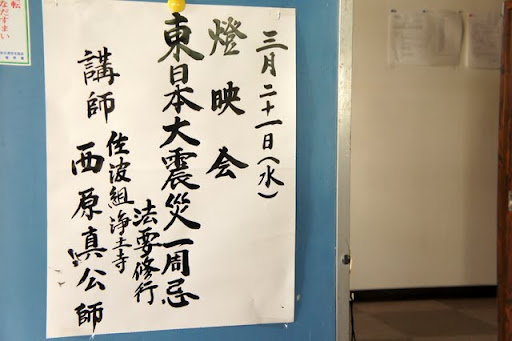 三月二十一日(水)
燈映会
東日本大震災一周忌
法要修行
講師
佐波組浄土寺
西原真公師